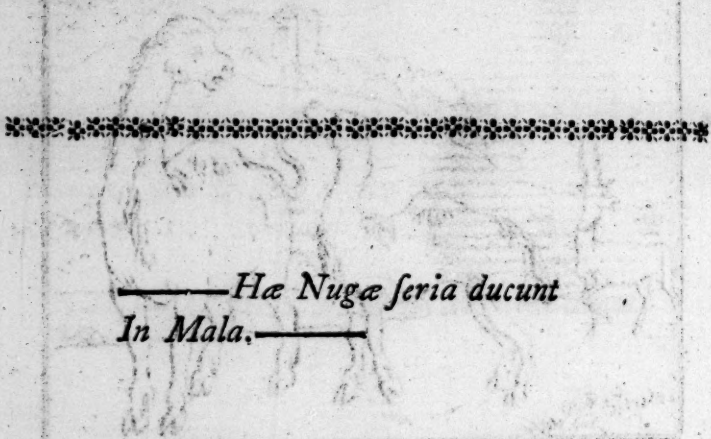 ——Hæ Nugæ ſeria ducunt
In Mala.——